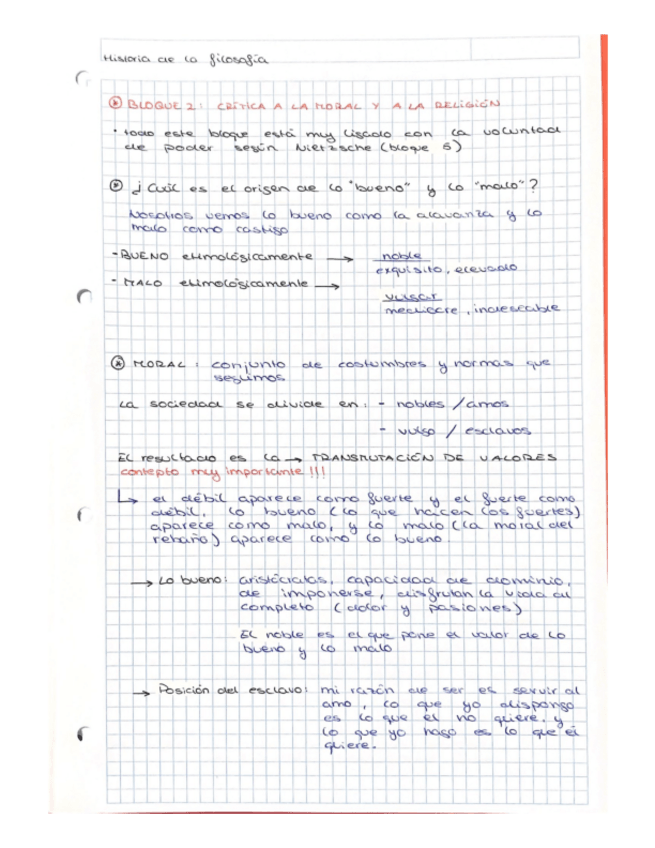 Historia de la filosofía
* BLOQUE 2: CRÍTICA A LA MORAL Y A LA RELIGIÓN
· todo este bloque está muy ligado con la voluntad
de poder según Nietzsche (bloque 5)
* ¿Cuál es el origen de lo "bueno" y lo "malo"?
Nosotros vemos lo bueno como la alavanza y lo
malo como castigo
- BUENO etimológicamente → noble
exquisito, elevado
- MALO etimológicamente →
vulgar
mediocre, indeseable
* MORAL: conjunto de costumbres y normas que
seguimos
La sociedad se divide en: - nobles / amos
- vulgo / esclavos
El resultado es la → TRANSMUTACIÓN DE VALORES
contepto muy importante !!!
↳ el débil aparece como fuerte y el fuerte como
débil, lo bueno (lo que hacen los fuertes)
aparece como malo, y lo malo (la moral del
rebaño) aparece como lo bueno.
→ Lo bueno: aristócratas, capacidad de dominio,
de imponerse, disfrutan la vida al
completo (dolor y pasiones)
El noble es el que pone el valor de lo
bueno y lo malo
→ Posición del esclavo: mi razón de ser es servir al
amo, lo que yo dispongo
es lo que él no quiere, y
lo que yo hago es lo que él
quiere.